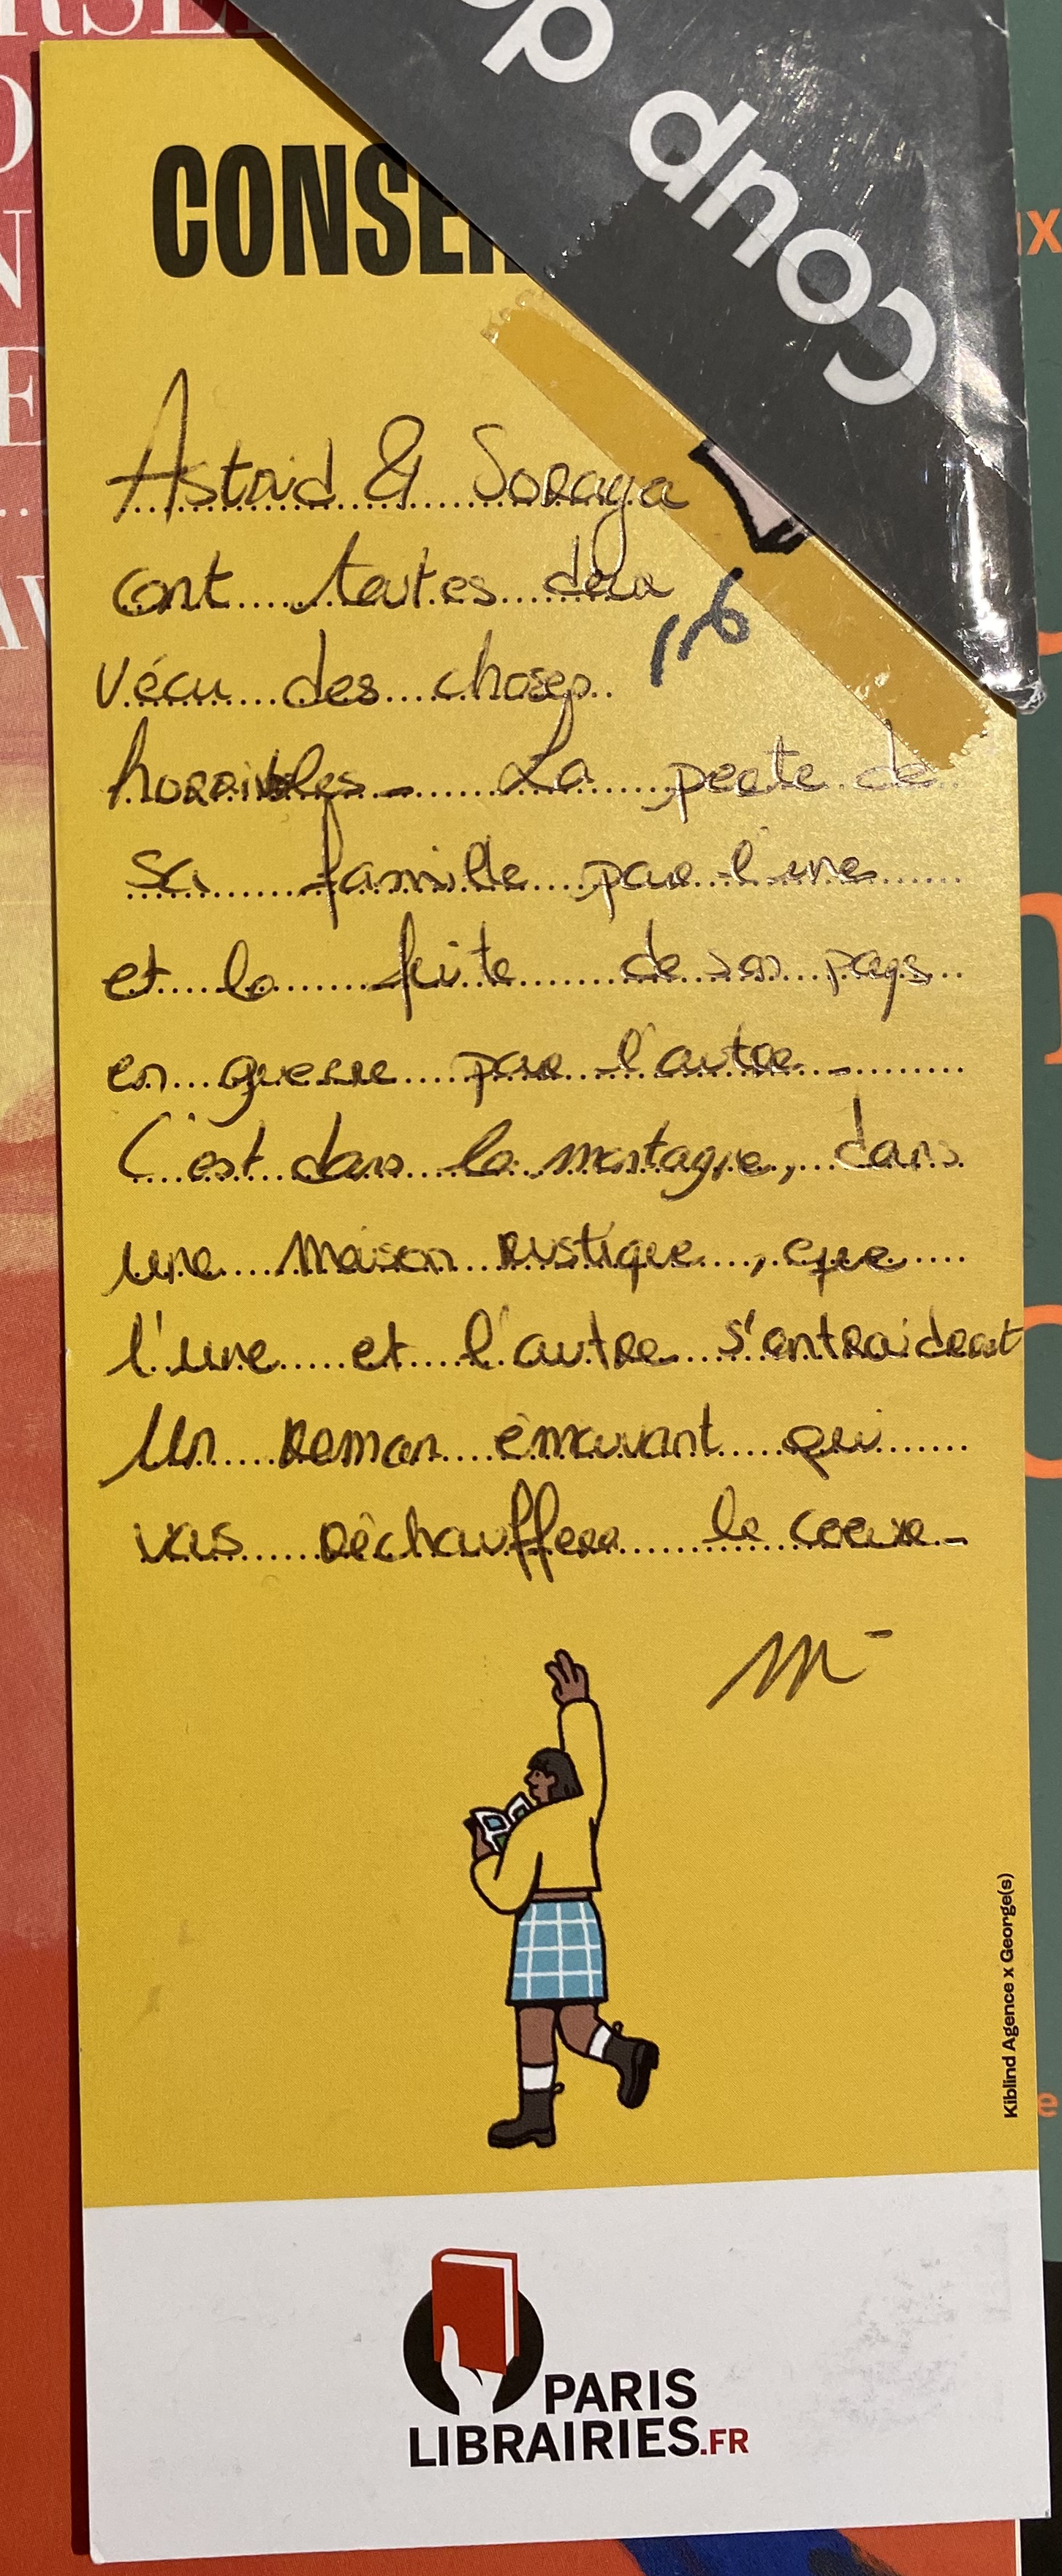 Coup de
CONSEI
Astrid & Soraya
ont toutes deux
vécu des choses
horribles. La perte de
sa famille par l'une
et la fuite de son pays
en guerre par l'autre.
C'est dans la montagne, dans
une maison rustique, que
l'une et l'autre s'entraident
Un roman émouvant qui
vous réchauffera le coeur.
M-
Kiblind Agence x George(s)
PARIS
LIBRAIRIES.FR